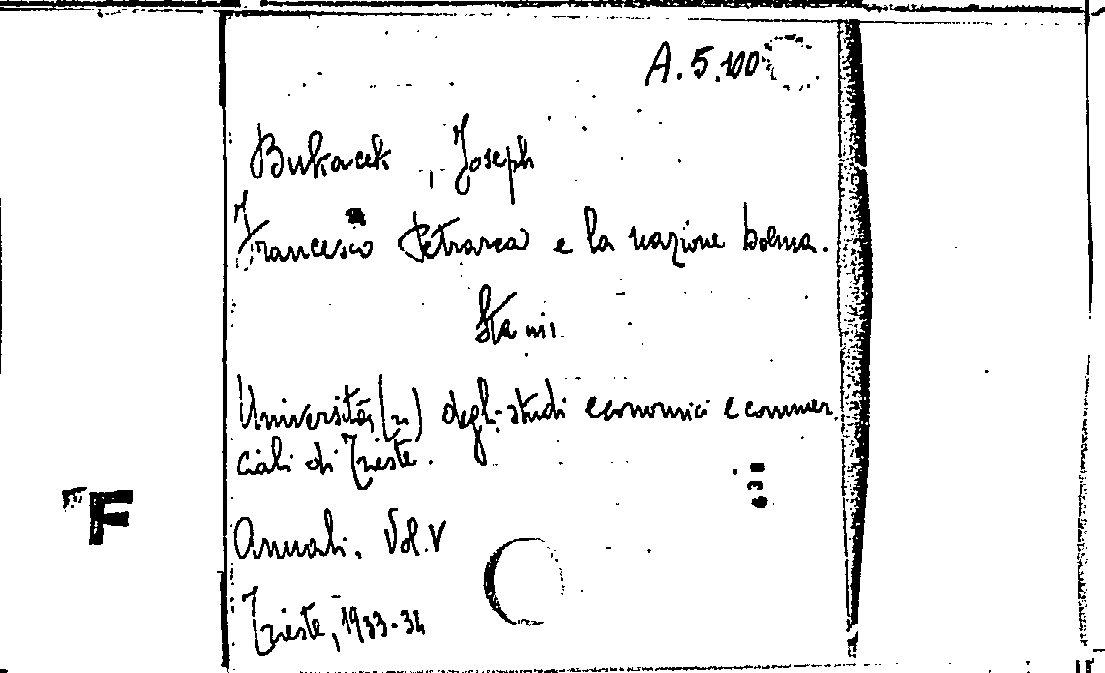 A.5.100
Bukacek, Joseph
Francesco Petrarca e la nazione boema.
Stam:
Università(R) degli studi economici e commer
ciali di Trieste.
Annali. Vol. V
Trieste, 1933-34
F